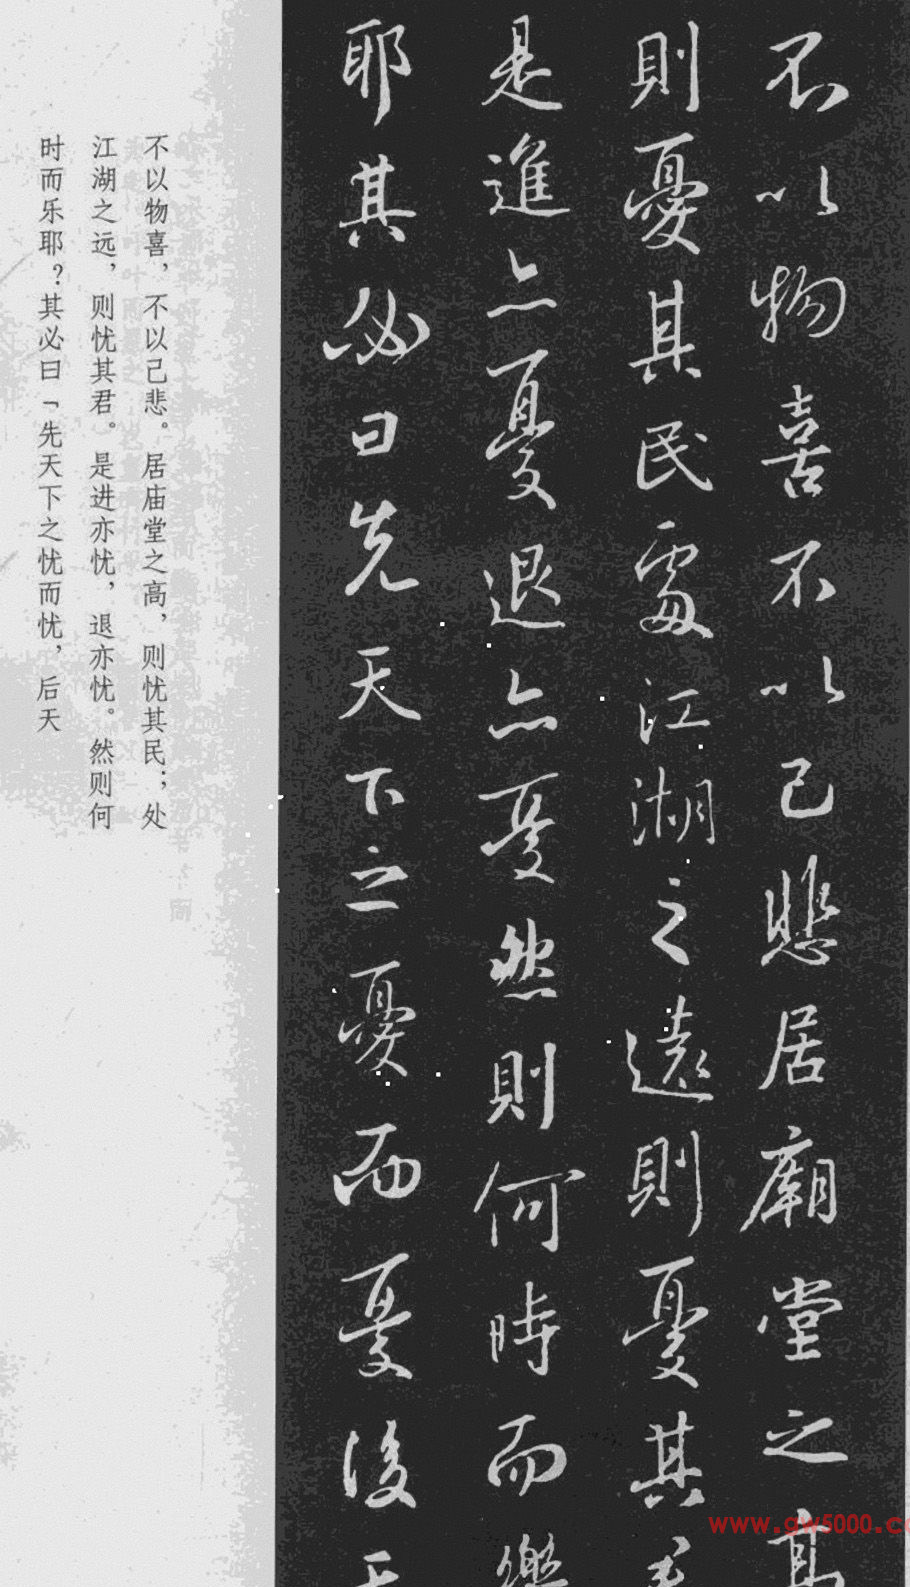 不以物喜不以己悲居廟堂之高
則憂其民處江湖之遠則憂其君
是進亦憂退亦憂然則何時而樂
耶其必曰先天下之憂而憂後天
不以物喜，不以己悲。居庙堂之高，则忧其民；处
江湖之远，则忧其君。是进亦忧，退亦忧。然则何
时而乐耶？其必曰「先天下之忧而忧，后天
www.gw5000.co